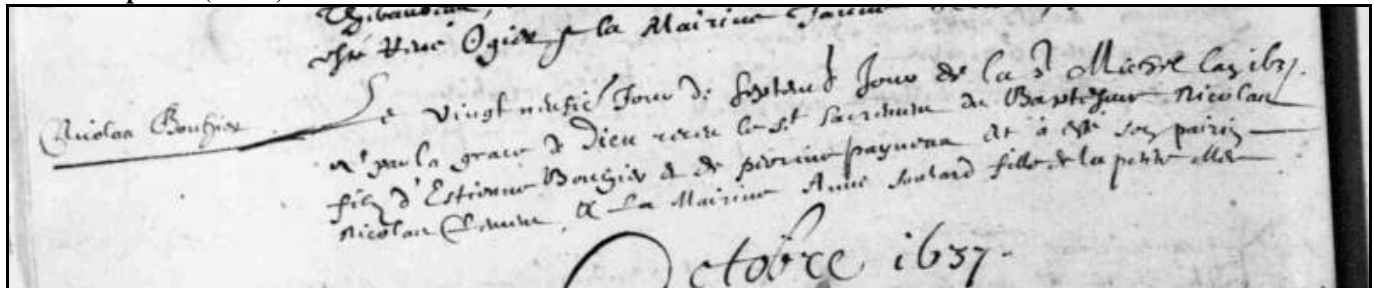 Thibaudeau,
René Ogier & la Mairine Janne
Nicolas Bouhier
Le vingt neufie Jour de Septemb Jour de la St Michel lan 1637.
a par la grace de Dieu receu le st Sacrement de Baptesme Nicolas
filz d'Estienne Bouhier & de perrine payneau Et a esté son pairin
Nicolas Clemen & La Mairine Anne soulard fille de la petite
Octobre 1637.